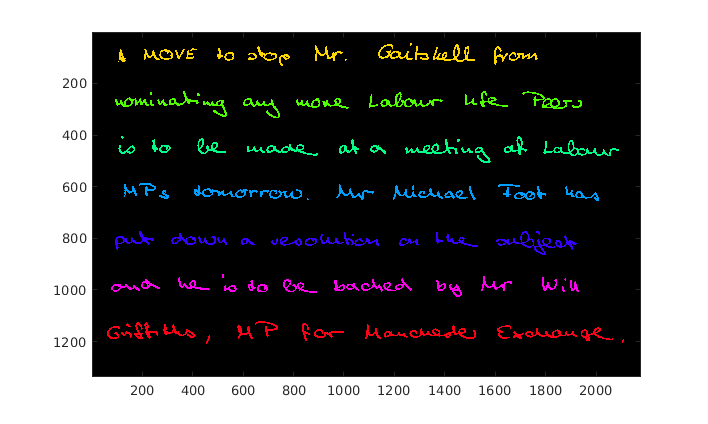 A MOVE to stop Mr. Gaitskell from
nominating any more Labour life Peers
is to be made at a meeting of Labour
MPs tomorrow. Mr Michael Foot has
put down a resolution on the subject
and he is to be backed by Mr Will
Griffiths, MP for Manchester Exchange.
200
400
600
800
1000
1200
200 400 600 800 1000 1200 1400 1600 1800 2000